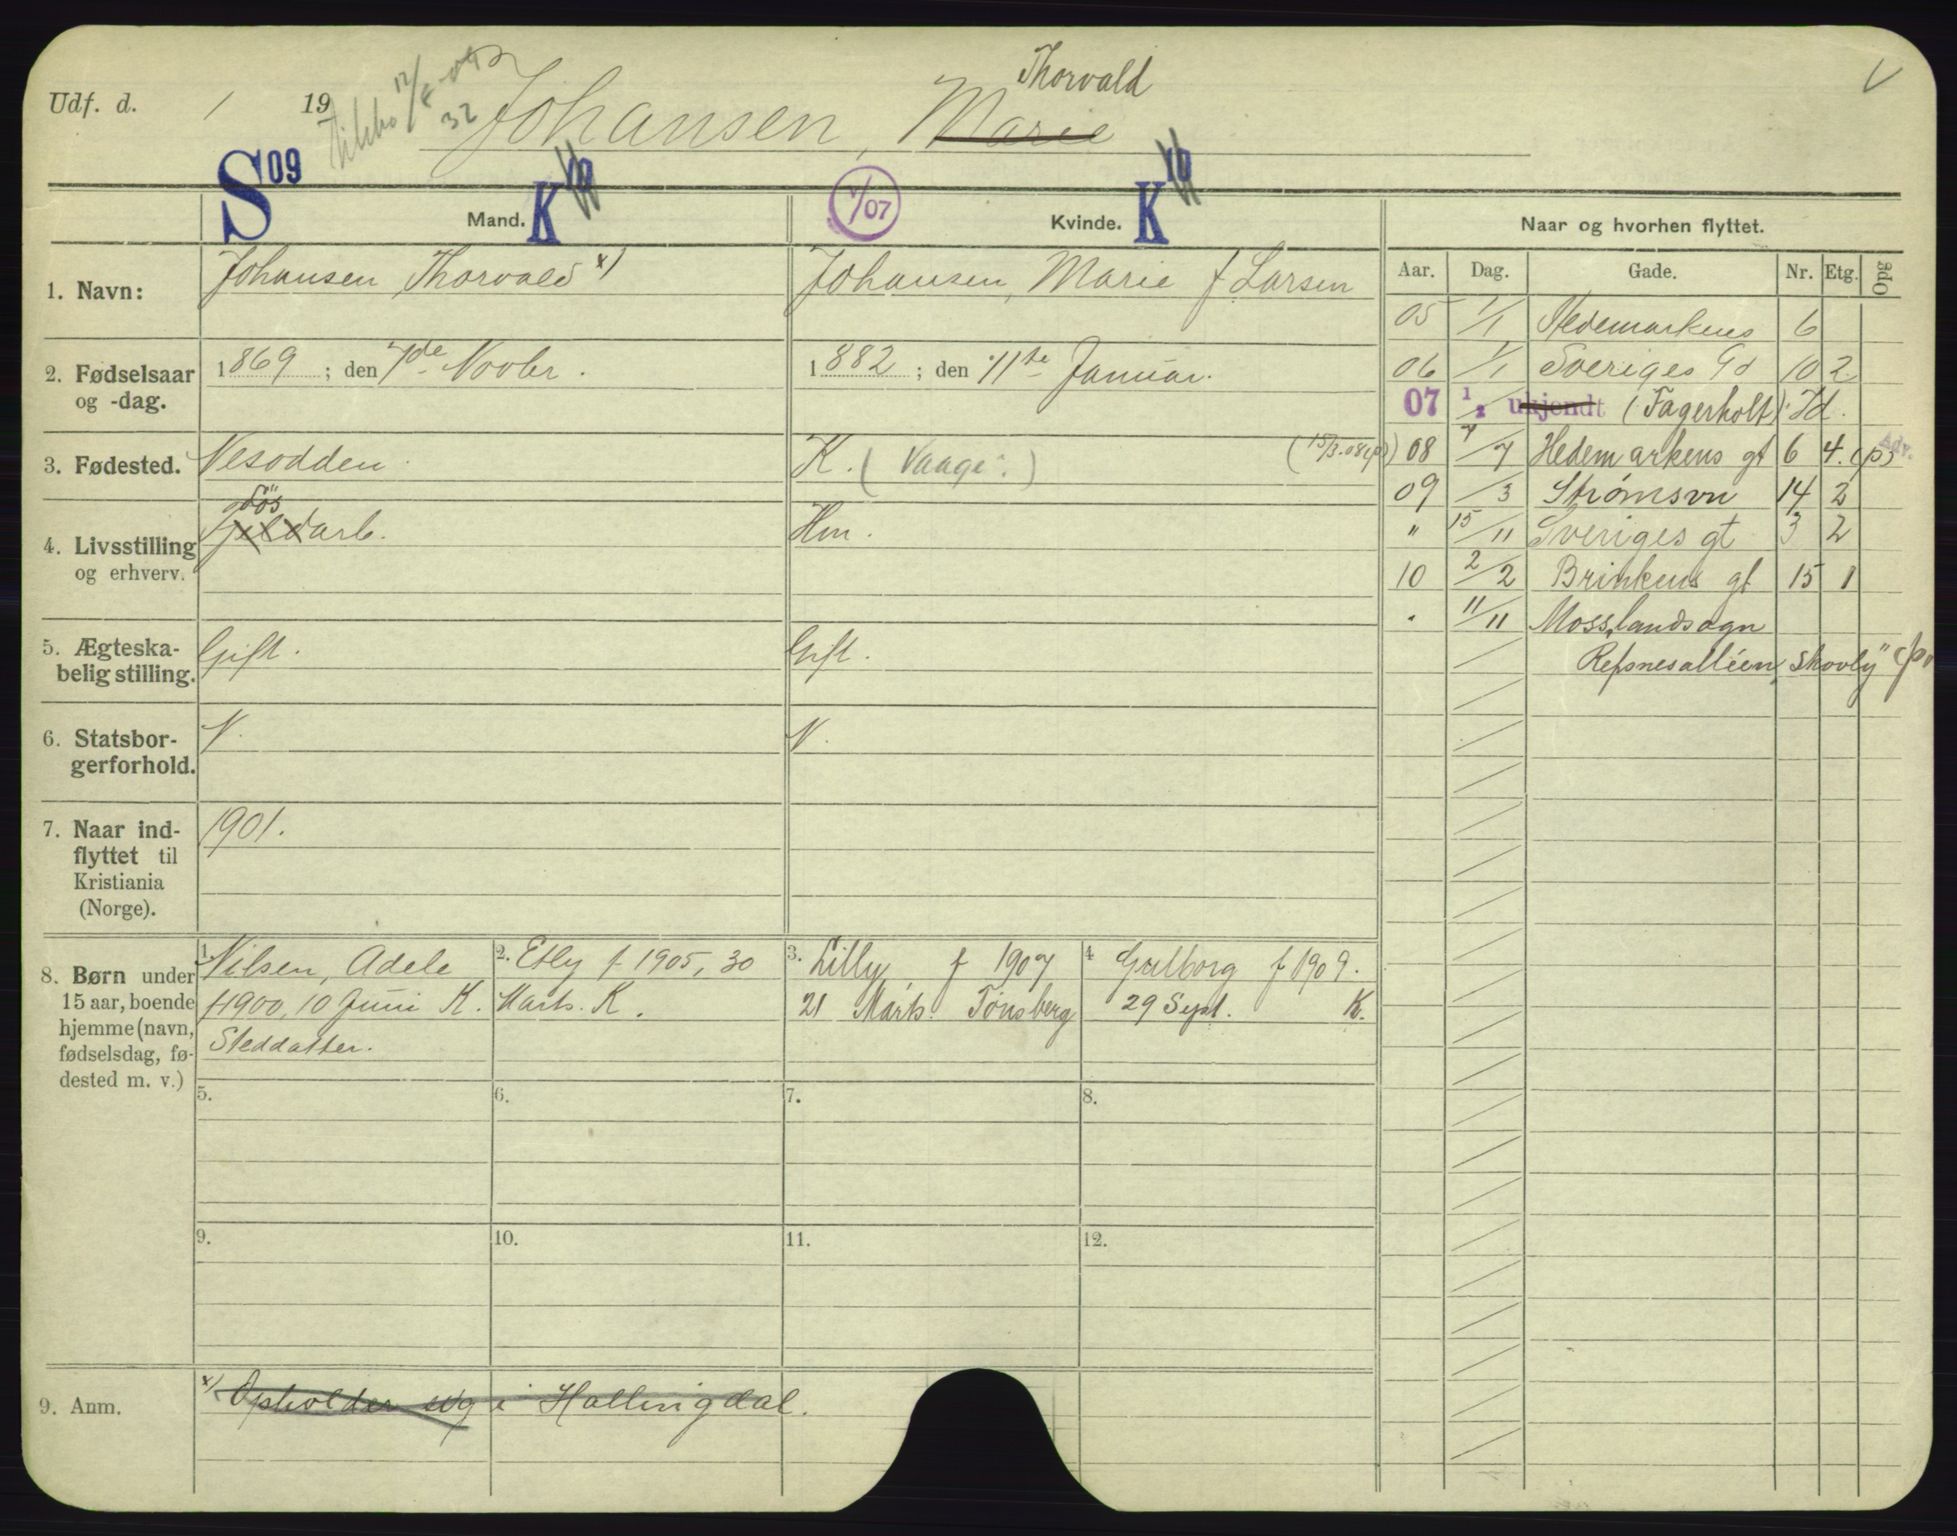 Udf. d. / 19
12/8-09
32
Johansen, Marie
Thorvald
S 09
K 10
V/07
K 10
Mand.
Kvinde.
Naar og hvorhen flyttet.
Aar. Dag. Gade. Nr. Etg. Opg
1. Navn:
Johansen, Thorvald x)
Johansen, Marie f Larsen
2. Fødselsaar
og -dag.
1869 ; den 7de Novbr.
1882 ; den 11te Januar.
3. Fødested.
Nesodden.
K. (Vaage:)
4. Livsstilling
og erhverv.
Løs
Fjeldarb.
Hm.
5. Ægteska-
belig stilling.
Gift.
Gift.
6. Statsbor-
gerforhold.
N.
N.
7. Naar ind-
flyttet til
Kristiania
(Norge).
1901.
8. Børn under
15 aar, boende
hjemme (navn,
fødselsdag, fø-
dested m. v.)
1. Nilsen, Adele
f 1900, 10 Juni K.
Steddatter.
2. Etly f 1905, 30
Marts. K.
3. Lilly f 1907
21 Marts. Tønsberg
4 Gulborg f 1909.
29 Sept. K.
5.
6.
7.
8.
9.
10.
11.
12.
9. Anm.
x) Opholder seg i Hallingdal.
05 1/1 Hedemarkens 6
06 1/1 Sveriges Gd 10 2
07 1/1 ukjendt (Fagerholt) Id.
(15/3.08(p)) 08 7/7 Hedemarkens gt 6 4. (p) Adv.
09 /3 Strømsvn 14 2
" 15/11 Sveriges gt 3 2
10 2/2 Brinkens gt 15 1
" 11/11 Moss landsogn
Refsnesalléen, "Skovly" (p)